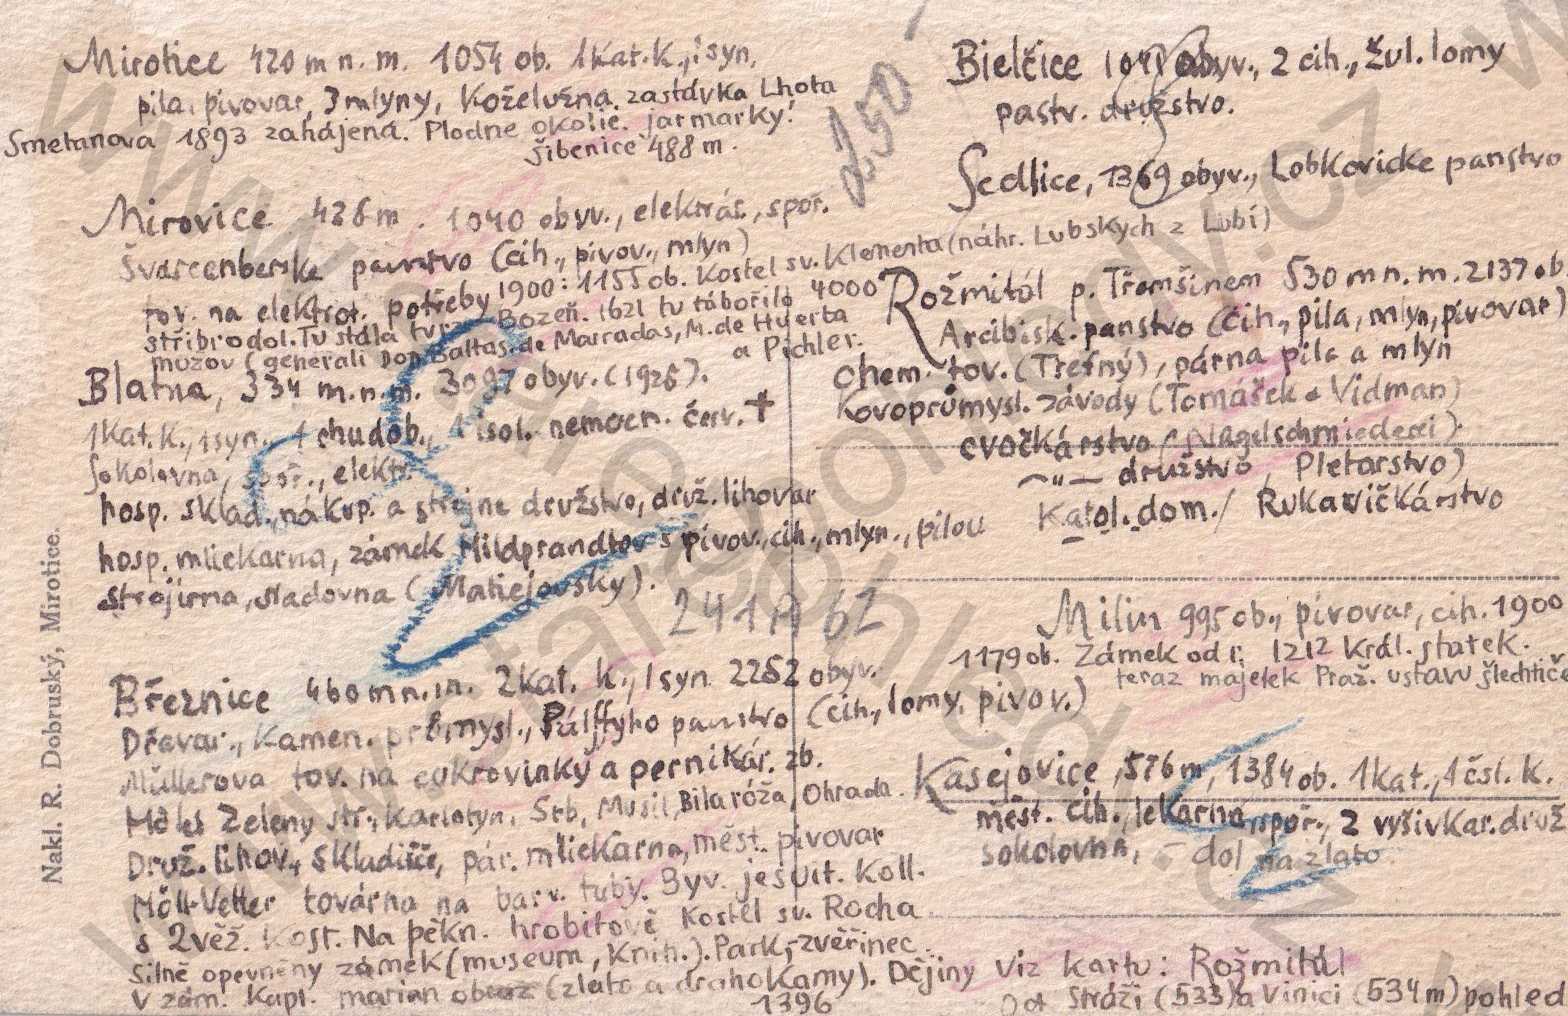 Mirotice 420 m n. m. 1054 ob. 1 kat. k., i syn.
pila, pivovar, 3 mlyny, Koželužna, zastávka Lhota
Smetanova 1893 zahájená. Plodne okolie. jarmarky.
šibenice 488 m.
Mirovice 426 m. 1040 obyv., elektrár., spoř.
Švarcenberske panstvo (cih., pivov., mlyn)
tov. na elektrot. potřeby 1900: 1155 ob. Kostel sv. Klementa (náhr. Lubskych z Lubí)
stříbrodol. Tu stála tvr Bozeň. 1621 tu tábořilo 4000
muzov (generali Don Baltas. de Marradas, M. de Huerta
a Pichler.
Blatna, 334 m.n.m. 3097 obyv. (1926).
1 Kat. k., 1 syn., 1 chudob., 1 isol. nemocn. červ. +
Sokolovna, spoř., elektr.
hosp. sklad., nákup. a strojne družstvo, druž. lihovar
hosp. mliekarna, zámek Hildprandtov s pivov., cih., mlyn., pilou
strojirna, sladovna (Matiejovsky).
241A62
Březnice 460 m n. m. 2 kat. k., 1 syn. 2252 obyv.
Dřevar., kamen. průmysl., Pálffyho panstvo (cih., lomy, pivov.)
Müllerova tov. na cukrovinky a pernikár. zb.
Hôtel Zeleny str., Karlstyn, Srb, Musil, Bila róža, Ohrada.
Druž. lihov., skladišč, pár. mliekarna, měst. pivovar
Möll-Vetter továrna na barv. tuby. Byv. jesuit. Koll.
s 2 věž. kost. Na pěkn. hrobitově Kostel sv. Rocha
Silně opevněny zámek (museum, Knih.). Park, zvěřinec.
V zám. Kapl. marian obraz (zlato a drahokamy). Dějiny viz kartu: Rožmitál
1396
Od Stráži (533) a Vinici (534 m) pohled
250 -
Bielčice 1041 obyv., 2 cih., žul. lomy
pastv. družstvo.
Sedlice, 1369 obyv., Lobkovicke panstvo
Rožmitál p. Třemšinem 530 m n. m. 2137 ob
Arcibisk. panstvo (cih., pila, mlyn, pivovar)
chem. tov. (Třetný), párna pila a mlyn
Kovoprůmysl. závody (Tomášek a Vidman)
cvočkárstvo (Nagelschmiederei)
—"— družstvo, Pletarstvo)
Katol. dom. / Rukavičkárstvo
Milin 995 ob., pivovar, cih. 1900
1179 ob. Zámek od r. 1212 Král. statek.
teraz majetek Praž. ustavu šlechtiče
Kasejovice, 576 m, 1384 ob. 1 kat., 1 čsl. k.
měst. cih., lekarna, spoř., 2 vyšivkar. druž
sokolovna, - dol na zlato
Nakl. R. Dobruský, Mirotice.
www.starepohledy.cz
www.starepohledy.cz